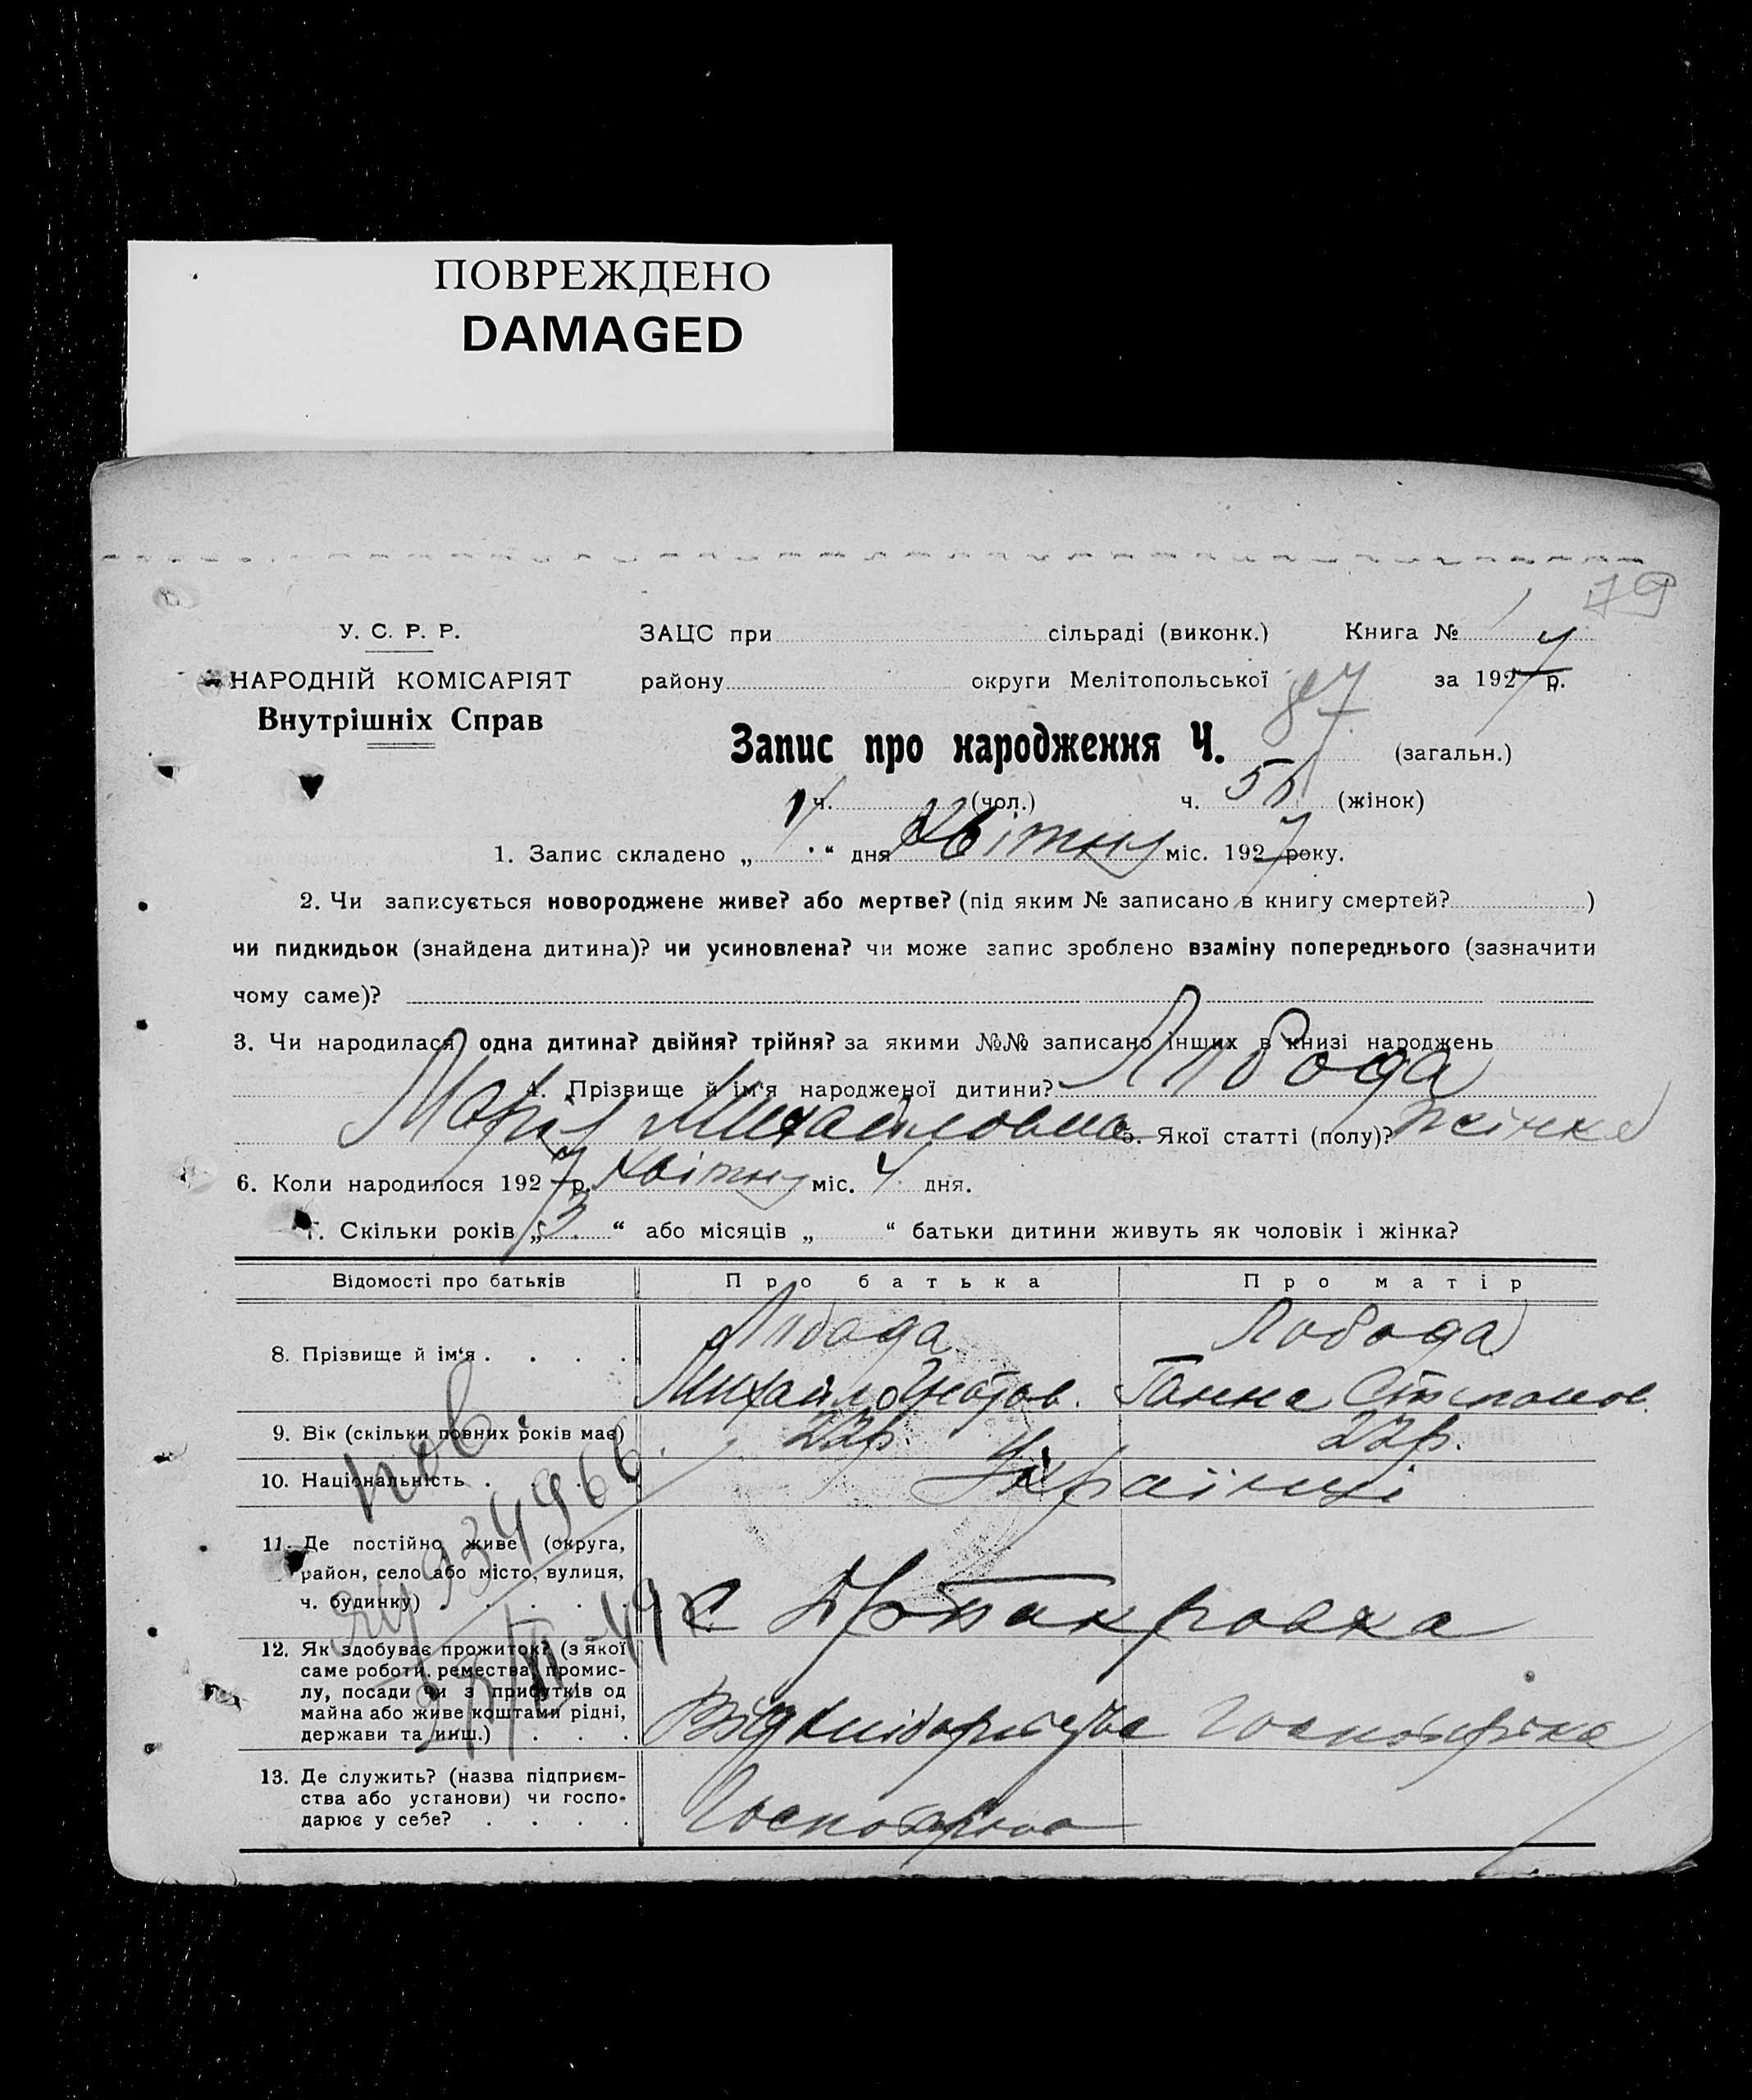 ПОВРЕЖДЕНО
DAMAGED
79
У. С. Р. Р.
НАРОДНІЙ КОМІСАРІЯТ
Внутрішніх Справ
ЗАЦС при сільраді (виконк.) Книга №
району округи Мелітопольської за 1927 р.
Запис про народження Ч. 87 (загальн.)
ч. (чол.) ч. (жінок)
1. Запис складено „ “ дня Квітня міс. 1927 року.
2. Чи записується новороджене живе? або мертве? (під яким № записано в книгу смертей? )
чи пидкидьок (знайдена дитина)? чи усиновлена? чи може запис зроблено взаміну попереднього (зазначити
чому саме)?
3. Чи народилася одна дитина? двійня? трійня? за якими №№ записано інших в книзі народжень
4. Прізвище й ім'я народженої дитини? Лобода
Марія Михайловна 5. Якої статті (полу)? жінка
6. Коли народилося 1927 р. Квітня міс. 4 дня.
7. Скільки років „ 3 “ або місяців „ “ батьки дитини живуть як чоловік і жінка?
Відомості про батьків Про батька Про матір
8. Прізвище й ім'я . . . . Лобода Лобода
Михайло Ганна Степанов.
9. Вік (скільки повних років має) 22р. 22р.
10. Національність . Українці
11. Де постійно живе (округа,
район, село або місто, вулиця,
ч. будинку) . . . . . с
12. Як здобуває прожиток? (з якої
саме роботи, ремества, промис-
лу, посади чи з прибутків од
майна або живе коштами рідні,
держави та инш.) . . .
13. Де служить? (назва підприєм-
ства або установи) чи госпо-
дарює у себе? . . . .